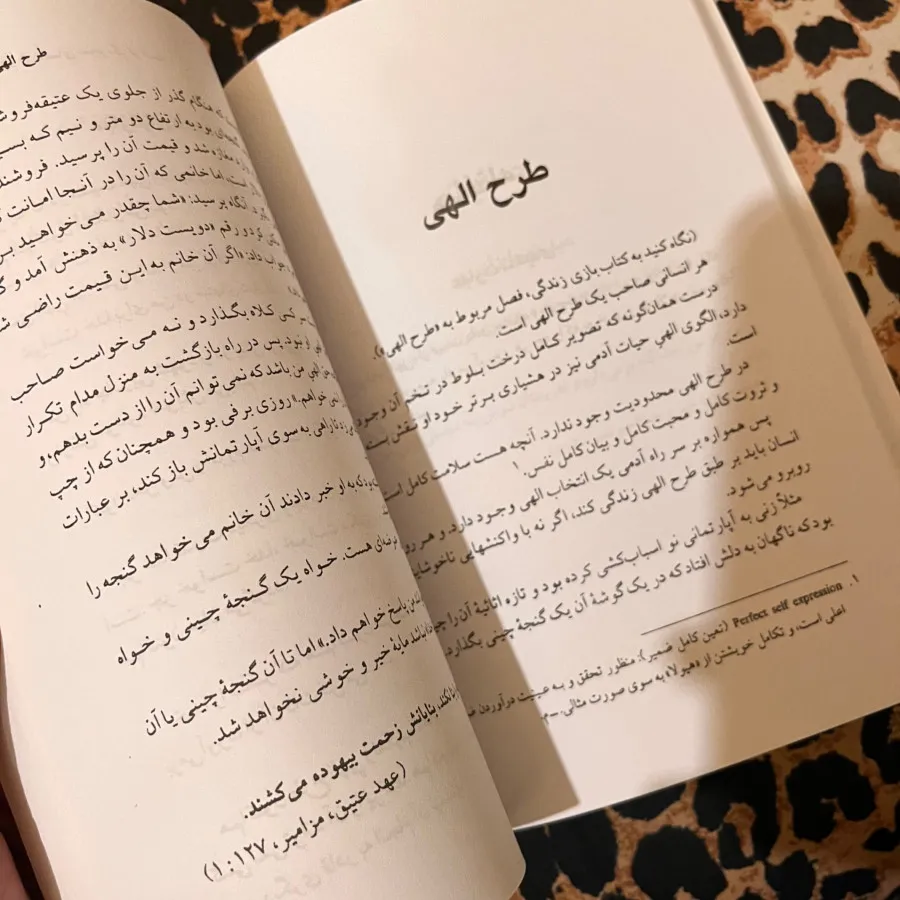 طرح الهی
(نگاه کنید به کتاب بازی زندگی، فصل مربوط به «طرح الهی»).
هر انسانی صاحب یک طرح الهی است.
درست همان‌گونه که تصویر کامل درخت بلوط در تخم آن وجود
دارد، الگوی الهیِ حیات آدمی نیز در هشیاری برتر خود او نقش بسته
است.
در طرح الهی محدودیت وجود ندارد. آنچه هست سلامت کامل است
و ثروت کامل و محبت کامل و بیان کامل نفس.۱
پس همواره بر سر راه آدمی یک انتخاب الهی وجود دارد. و هر
انسان باید بر طبق طرح الهی زندگی کند، اگر نه با واکنشهایی
روبرو می‌شود.
مثلاً زنی به آپارتمانی نو اسباب‌کشی کرده بود و تازه اثاثیهٔ آن را
بود که ناگهان به دلش افتاد که در یک گوشهٔ آن یک گنجهٔ چینی بگذارد.
۱. Perfect self expression (تعین کامل ضمیر): منظور تحقق و به عینیت درآوردن
اعلی است، و تکامل خویشتن از «هیولا» به سوی صورت مثالی. ــ م.
طرح الهی
که هنگام گذر از جلوی یک عتیقه‌فروش
بود به ارتفاع دو متر و نیم که
مغازه شد و قیمت آن را پرسید.
است، اما خانمی که آن را در آنجا امانت
آنگاه پرسید: «شما چقدر می‌خواهید
کرد و رقم «دویست دلار» به ذهنش آمد و
داد: «اگر آن خانم به این قیمت راضی
کسی کلاه بگذارد و نه می‌خواست صاحب
او نبود. پس در راه بازگشت به منزل مدام تکرار
من باشد که نمی‌توانم آن را از دست بدهم، و
نمی‌خواهم.» روزی برفی بود و همچنان که از چپ
راهی به سوی آپارتمانش باز کند، بر عبارات
که به او خبر دادند آن خانم می‌خواهد گنجه را
هست. خواه یک گنجهٔ چینی و خواه
پاسخ خواهم داد.» اما تا آن گنجهٔ چینی یا آن
نباشد مایهٔ خیر و خوشی نخواهد شد.
نکند، بنایانش زحمت بیهوده می‌کشند.
(عهد عتیق، مزامیر، ۱:۱۲۷)